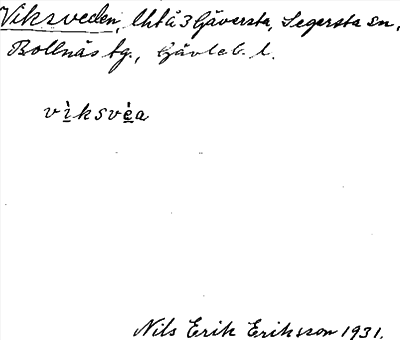 Viksveden, lht å 3 Gäversta, Segersta sn,
Bollnäs tg., Gävleb. l.
vìksvèa
Nils Erik Eriksson 1931.